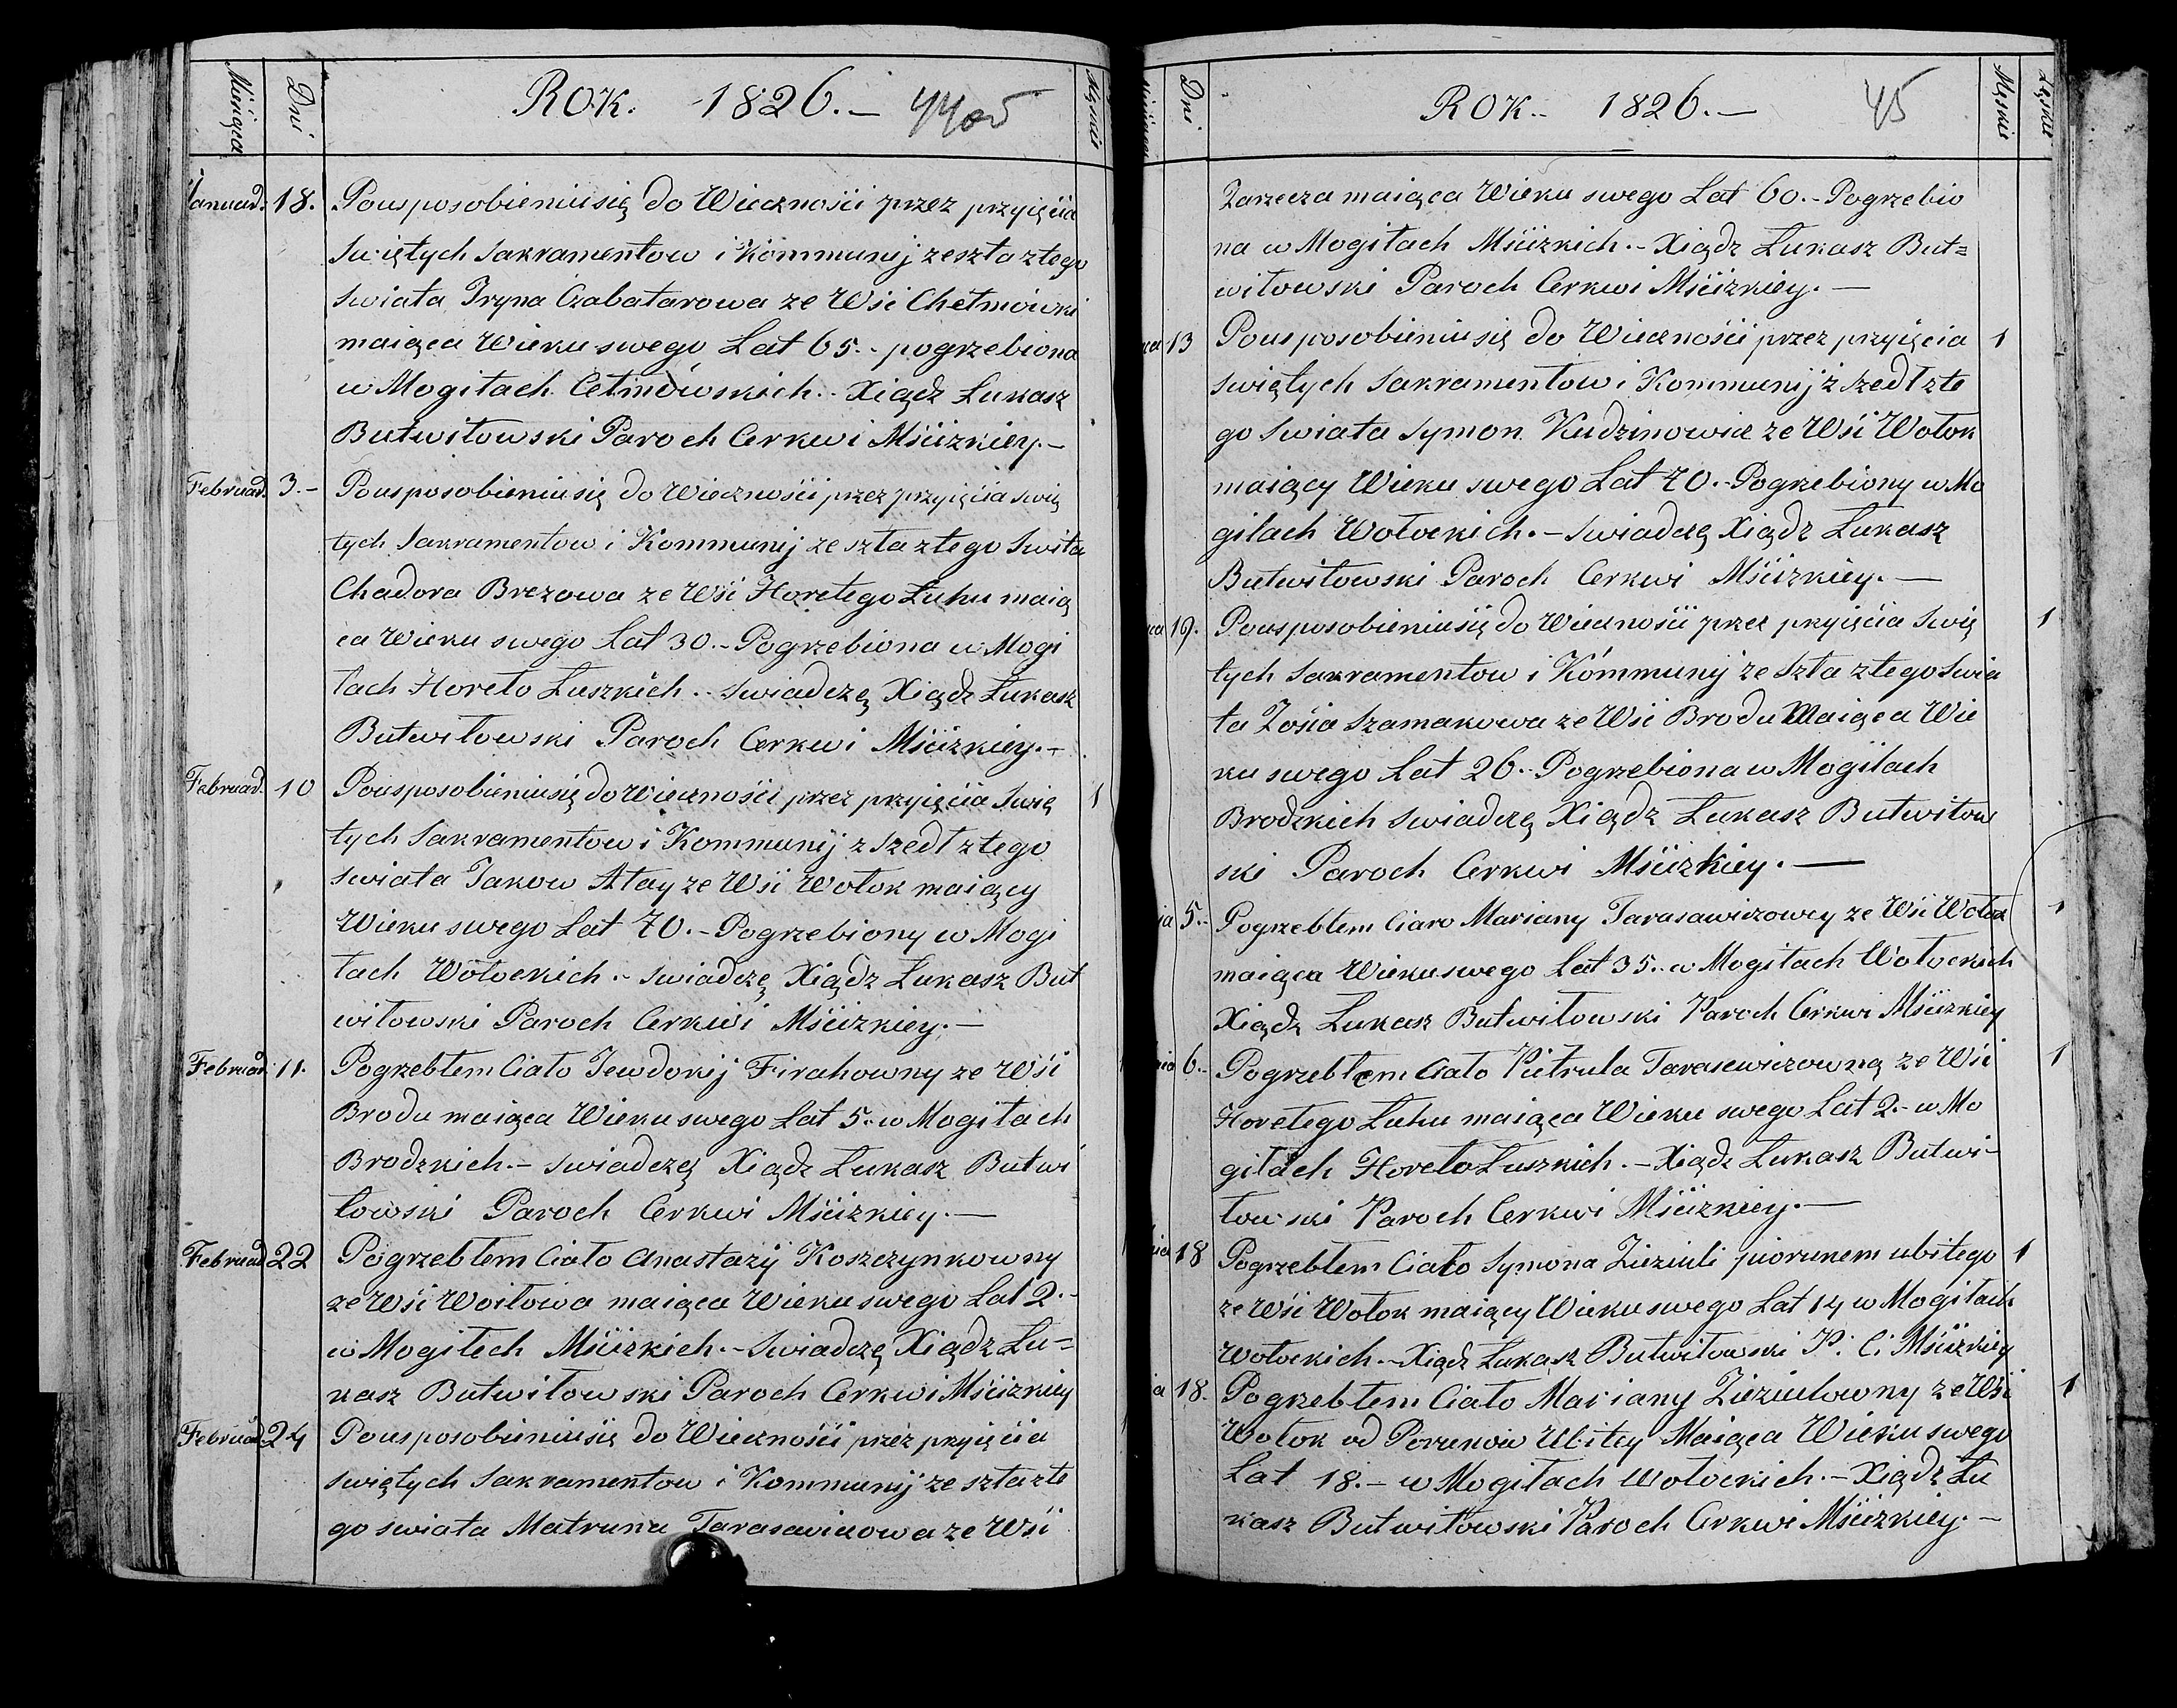 Miesięca Dni ROK. 1826.— 44 Męskie
Januar. 18. Pousposobieniusię do Wiecznośći przez przyięcia
Swiętych Sakramentow i Kommunij zeszła ztego
Swiata Iryna Czabatarowa ze Wśi Chełmowki
maiąca Wieku swego Lat 65.- pogrzebiona
w Mogiłach Cełmowskich.- Xiądz Łukasz
Butwiłowski Paroch Cerkwi Mśćizkiey.—
Februar. 3.- Pousposobieniusię do Wiecznośći przez przyięcia Swię
tych Sakramentow i Kommunij ze szła ztego Swita
Chadora Brezowa ze Wśi Horełego Łuhu maią
ca Wieku swego Lat 30.- Pogrzebiona w Mogi
łach Horeło Łuszkich.- Swiadczę Xiądz Łukasz
Butwiłowski Paroch Cerkwi Mśćizkiey.-
Februar. 10 Pousposobieniusię do Wiecznośći przez przyięcia Swię 1
tych Sakramentow i Kommunij z szedł ztego
Swiata Jakow Ataỹ ze Wśi Wołok maiący
Wieku swego Lat 70.- Pogrzebiony w Mogi
łach Wołockich.- Swiadczę Xiądz Łukasz But
wiłowski Paroch Cerkwi Mśćizkiey.—
Februar. 11. Pogrzebłem Ciało Jewdokij Firahowny ze Wśi
Brodu maiąca Wieku swego Lat 5.- w Mogiłach
Brodzkich.- Swiadczę Xiądz Łukasz Butwi
łowski Paroch Cerkwi Mśćizkiey.—
Februar. 22 Pogrzebłem Ciało Anastazỹ Koszczynkowny
ze Wśi Woiłowa maiąca Wieku swego Lat 2.-
w Mogiłech Mśćizkich.- Swiadczę Xiądz Łu=
kasz Butwiłowski Paroch Cerkwi Mśćizkiey
Februar. 24 Pousposobieniusię do Wiecznośći przez przyięcia
swiętych Sakramentow i Kommunij ze szła zte
go swiata Matruna Tarasawicowa ze Wśi
Dni ROK.- 1826.— 45 Męskie Żęskie
Zarzecza maiąca Wieku swego Lat 60.- Pogrzebio
na w Mogiłach Mśćizkich.- Xiądz Łukasz But=
wiłowski Paroch Cerkwi Mśćizkiey.—
13 Pousposobieniusię do Wiecznośći przez przyięcia 1
swiętych Sakramentow i Kommunij z szedł zte
go Swiata Symon Kudzinowicz ze Wśi Wołok
maiący Wieku swego Lat 70.- Pogrzebiony w Mo
giłach Wołockich.- Swiadczę Xiądz Łukasz
Butwiłowski Paroch Cerkwi Mśćizkiey.—
19. Pousposobieniusię do Wiecznośći przez przyięcia Swię 1
tych Sakramentow i Kommunij ze szła ztego Swia
ta Zośia Szamakowa ze Wśi Brodu Maiąca Wie
ku swego Lat 26.- Pogrzebiona w Mogiłach
Brodzkich Swiadczę Xiądz Łukasz Butwiłow
ski Paroch Cerkwi Mśćizkiey.—
5.- Pogrzebłem Ciało Mariany Tarasawiczowey ze Wśi Wołok 1
maiąca Wieku swego Lat 35.- w Mogiłach Wołockich
Xiądz Łukasz Butwiłowski Paroch Cerkwi Mśćizkiey
6.- Pogrzebłem Ciało Pietrula Tarasewiczowną ze Wśi 1
Horełego Łuhu maiąca Wieku swego Lat 2.- w Mo
giłach Horeło Łuszkich.- Xiądz Łukasz Butwi-
łowski Paroch Cerkwi Mśćizkiey.—
18 Pogrzebłem Ciało Symona Zieziuli piorunem ubitego 1
ze Wśi Wołok maiący Wieku swego Lat 14 w Mogiłach
Wołockich.- Xiądz Łukasz Butwiłowski P. C. Mśćizkiey
18. Pogrzebłem Ciało Mariany Zieziulowny ze Wśi 1
Wołok od Porunow Ubitey Maiąca Wieku swego
Lat 18.- w Mogiłach Wołockich.- Xiądz Łu
kasz Butwiłowski Paroch Cerkwi Mśćizkiey.—